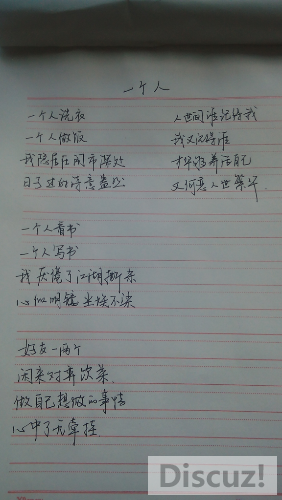 一个人
一个人洗衣
一个人做饭
我隐居在闹市深处
日子过的诗意盎然
人世间谁记得我
我又记得谁
才华够养活自己
又何恋人世繁华
一个人看书
一个人写书
我厌倦了江湖厮杀
心似明镜 尘埃不染
好友一两个
闲来对弈饮茶
做自己想做的事情
心中了无牵挂
Discuz!